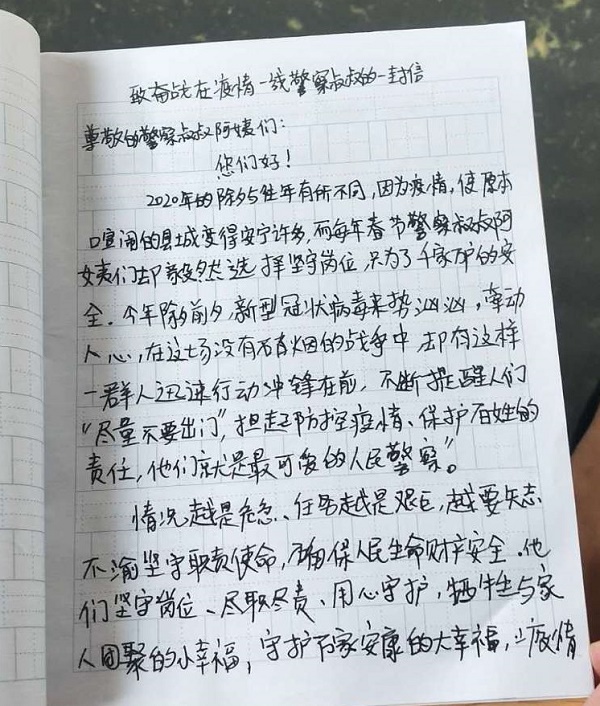 致奋战在疫情一线警察叔叔的一封信
尊敬的警察叔叔阿姨们：
您们好！
2020年的除夕与往年有所不同，因为疫情，使原本
喧闹的县城变得安宁许多，而每年春节警察叔叔阿
姨们却毅然选择坚守岗位，只为了千家万户的安
全。今年除夕前夕，新型冠状病毒来势汹汹，牵动
人心，在这场没有硝烟的战争中，却有这样
一群人迅速行动冲锋在前，不断提醒人们
“尽量不要出门”，担起防控疫情、保护百姓的
责任，他们就是最可爱的人民警察”。
情况越是危急、任务越是艰巨，越要矢志
不渝坚守职责使命，确保人民生命财产安全。他
们坚守岗位、尽职尽责、用心守护，牺牲与家
人团聚的小幸福，守护百家安康的大幸福，疫情